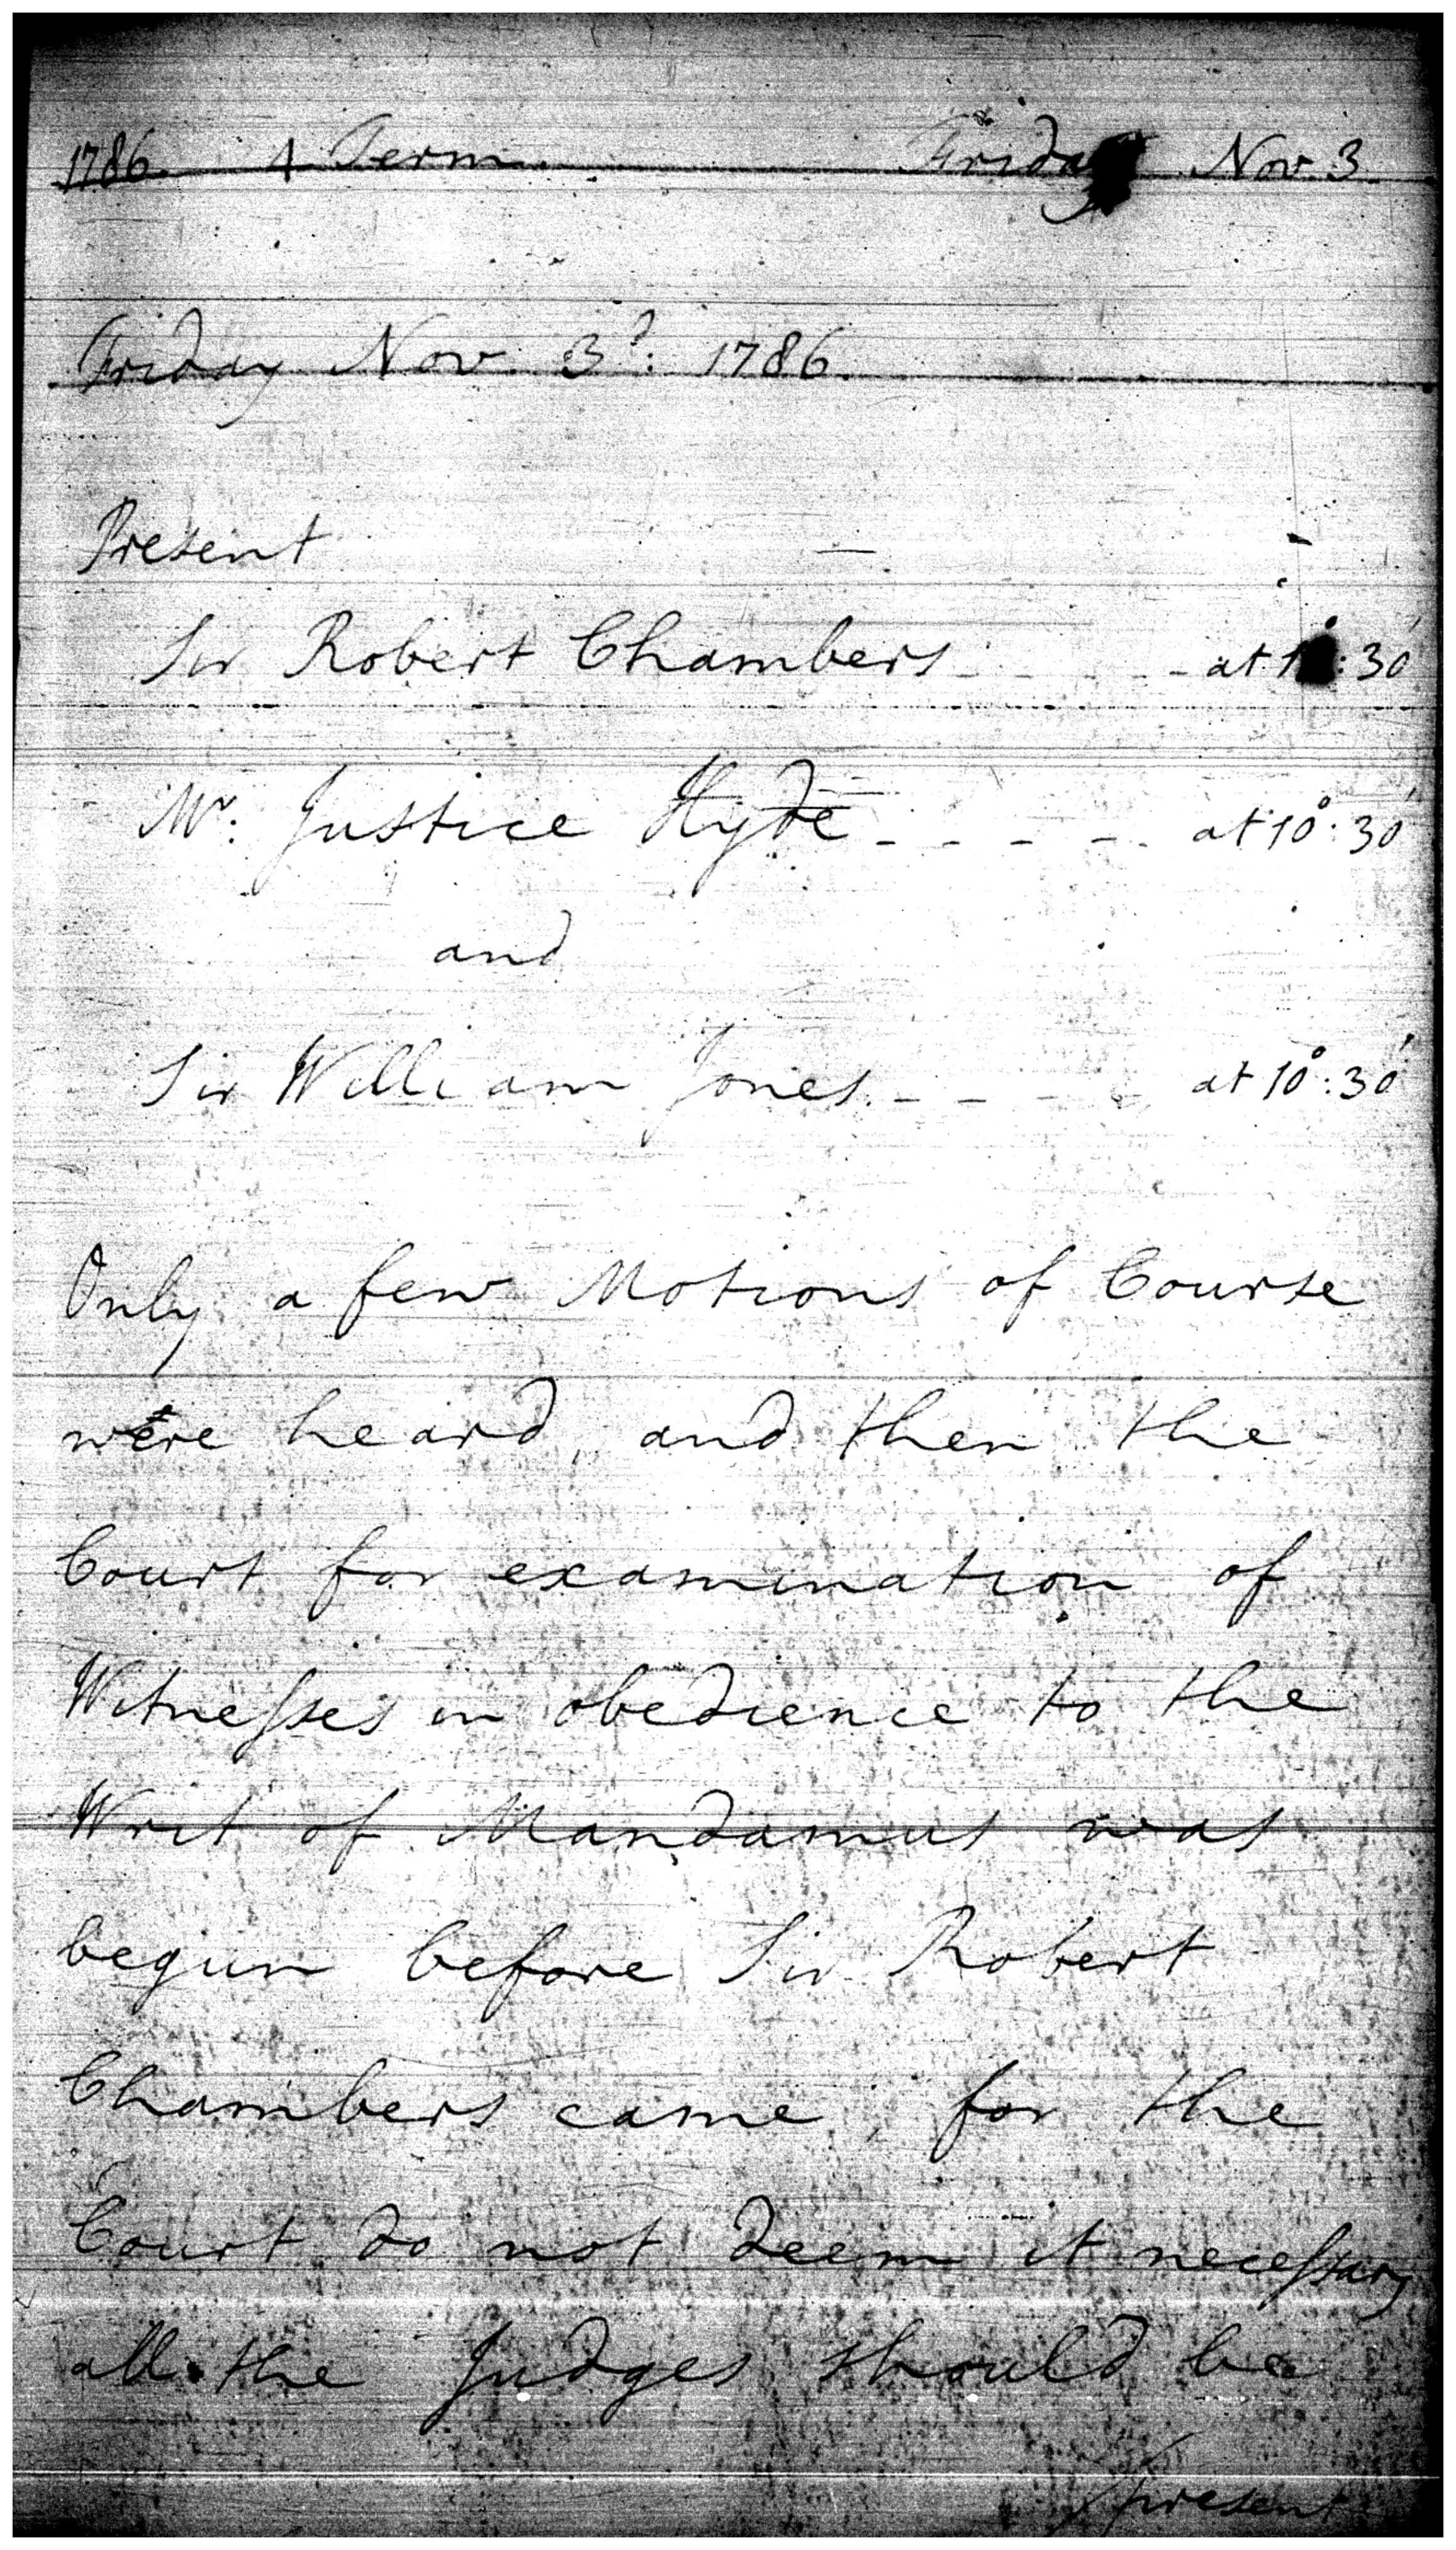 1786. 4 Term Friday Nov. 3.
Friday Nov. 3d. 1786.
Present
Sir Robert Chambers - - - - at 1 : 30'
Mr. Justice Hyde - - - - - at 10°: 30'
and
Sir William Jones. - - - - at 10°: 30'
Only a few Motions of Course
were heard, and then the
Court for examination of
Witneſses in obedience to the
Writ of Mandamus was
begun before Sir Robert
Chambers came, for the
Court do not deem it neceſsary
all the Judges should be
present